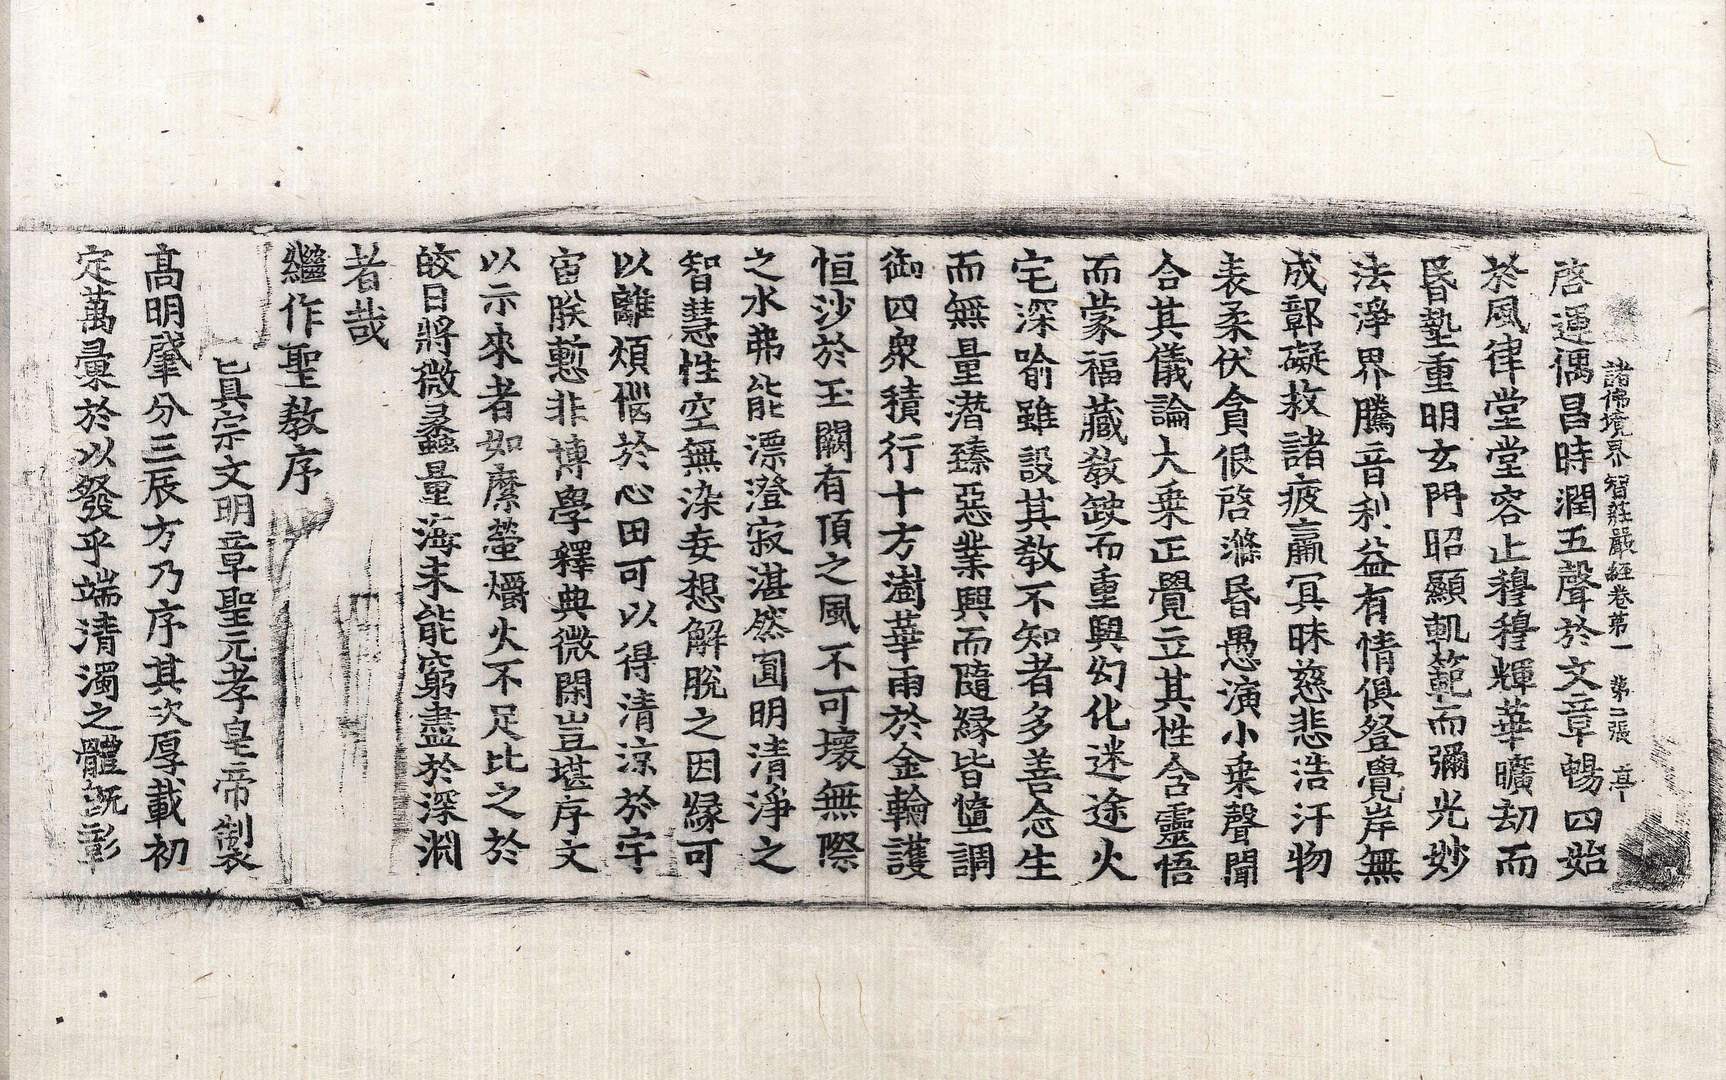 諸佛境界智莊嚴經卷第一　第二張　亭
啓運偶昌時潤五聲於文章暢四始
於風律堂堂容止穆穆輝華曠劫而
昬墊重明玄門昭顯軌範而彌光妙
法淨界騰音利益有情俱登覺岸無
成鄣礙救諸疲羸冥昧慈悲浩汗物
表柔伏貪佷啓滌昬愚演小乗聲聞
合其儀論大乗正覺立其性含靈悟
而蒙福藏教缺而重興幻化迷途火
宅深喻雖設其教不知者多善念生
而無量潛臻惡業興而隨緣皆墮調
御四衆積行十方澍華雨於金輪護
恒沙於玉闕有頂之風不可壞無際
之水弗能漂澄寂湛然圓明清淨之
智慧性空無染妄想解脫之因緣可
以離煩惱於心田可以得清涼於宇
宙朕慙非博學釋典微閑豈堪序文
以示來者如縻螢爝火不足比之於
皎日將微蠡量海未能窮盡於深淵
者哉
繼作聖教序
宗文明章聖元孝皇帝製
高明肇分三辰方乃序其次厚載初
定萬彙於以發乎端清濁之體旣彰